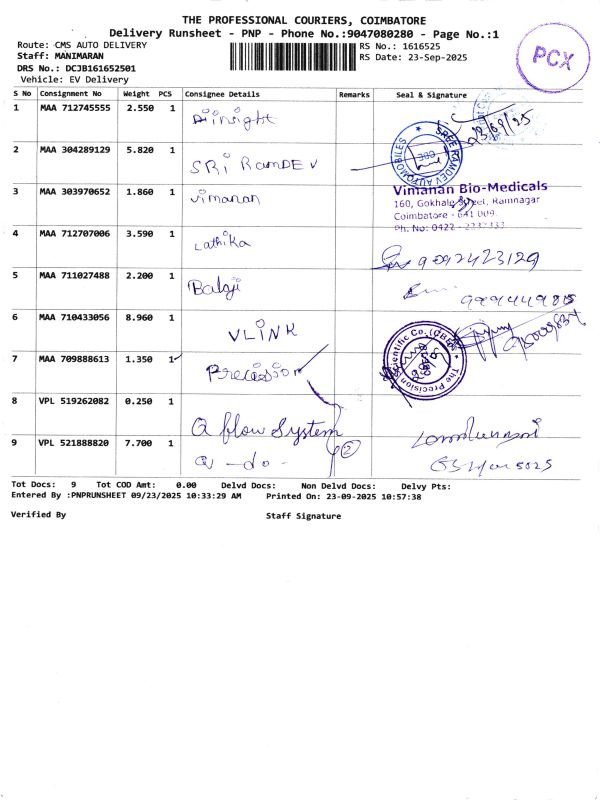 THE PROFESSIONAL COURIERS, COIMBATORE
Delivery Runsheet - PNP - Phone No.:9047080280 - Page No.:1
Route: CMS AUTO DELIVERY
RS No.: 1616525
Staff: MANIMARAN
RS Date: 23-Sep-2025
DRS No.: DCJB161652501
Vehicle: EV Delivery
PCX
S No Consignment No Weight PCS Consignee Details Remarks Seal & Signature
1 MAA 712745555 2.550 1
23/09/25
2 MAA 304289129 5.820 1 SRi RAMDEV
SREE RAMDEV AUTOMOBILES
3 MAA 303970652 1.860 1 Vimanan
Vimanan Bio-Medicals
160, Gokhale Street, Ramnagar
Coimbatore - 641 009.
Ph. No: 0422 -
4 MAA 712707006 3.590 1 Lathika
9092423129
5 MAA 711027488 2.200 1 Balaji
6 MAA 710433056 8.960 1 VLINK
7 MAA 709888613 1.350 1 Precision
The Precision Scientific Co. (CBE)
8 VPL 519262082 0.250 1 Q flow System
9 VPL 521888820 7.700 1 - do - 2
Tot Docs: 9 Tot COD Amt: 0.00 Delvd Docs: Non Delvd Docs: Delvy Pts:
Entered By :PNPRUNSHEET 09/23/2025 10:33:29 AM Printed On: 23-09-2025 10:57:38
Verified By Staff Signature